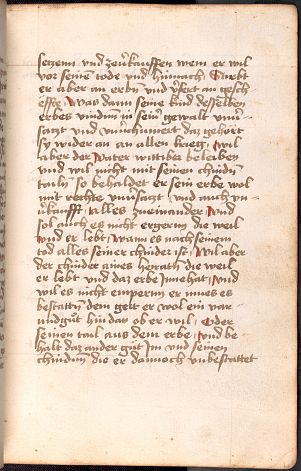 seczenn vnd zeu᷑kauffen wem er wil
vor seinē tode vnd hinnach
er aber an erbn̄ vnd
Was dann seine kind desselben
erbes vindenn in sein᷑ gewalt
vnd daz gehort
sy wider an an allen krieg, wil
aber der Vater wittiber beleiben
vnd wil nicht mit seinen chindn̄
tailn̄ so behaldet er sein erbe wol
mit rechte vnd auch vn
alles zueinander, vnd
sol auch es nicht ergern̄ die weil
vnd er lebt, wann es nach seinem
tod alles seiner chinder ist, Wil aber
der chinder aines heratn̄ die weil
er lebt vnd daz erbe Innehat, vnd
wil es nicht emperenn er mues es
bestattn̄ dem gelt er wol ein var
undgut hindan ob er wil, Oder
seinen tail aus dem erbe, vnd be
halt daz ander gut Im vnd seinen
chindenn die er dannoch vnbestattet